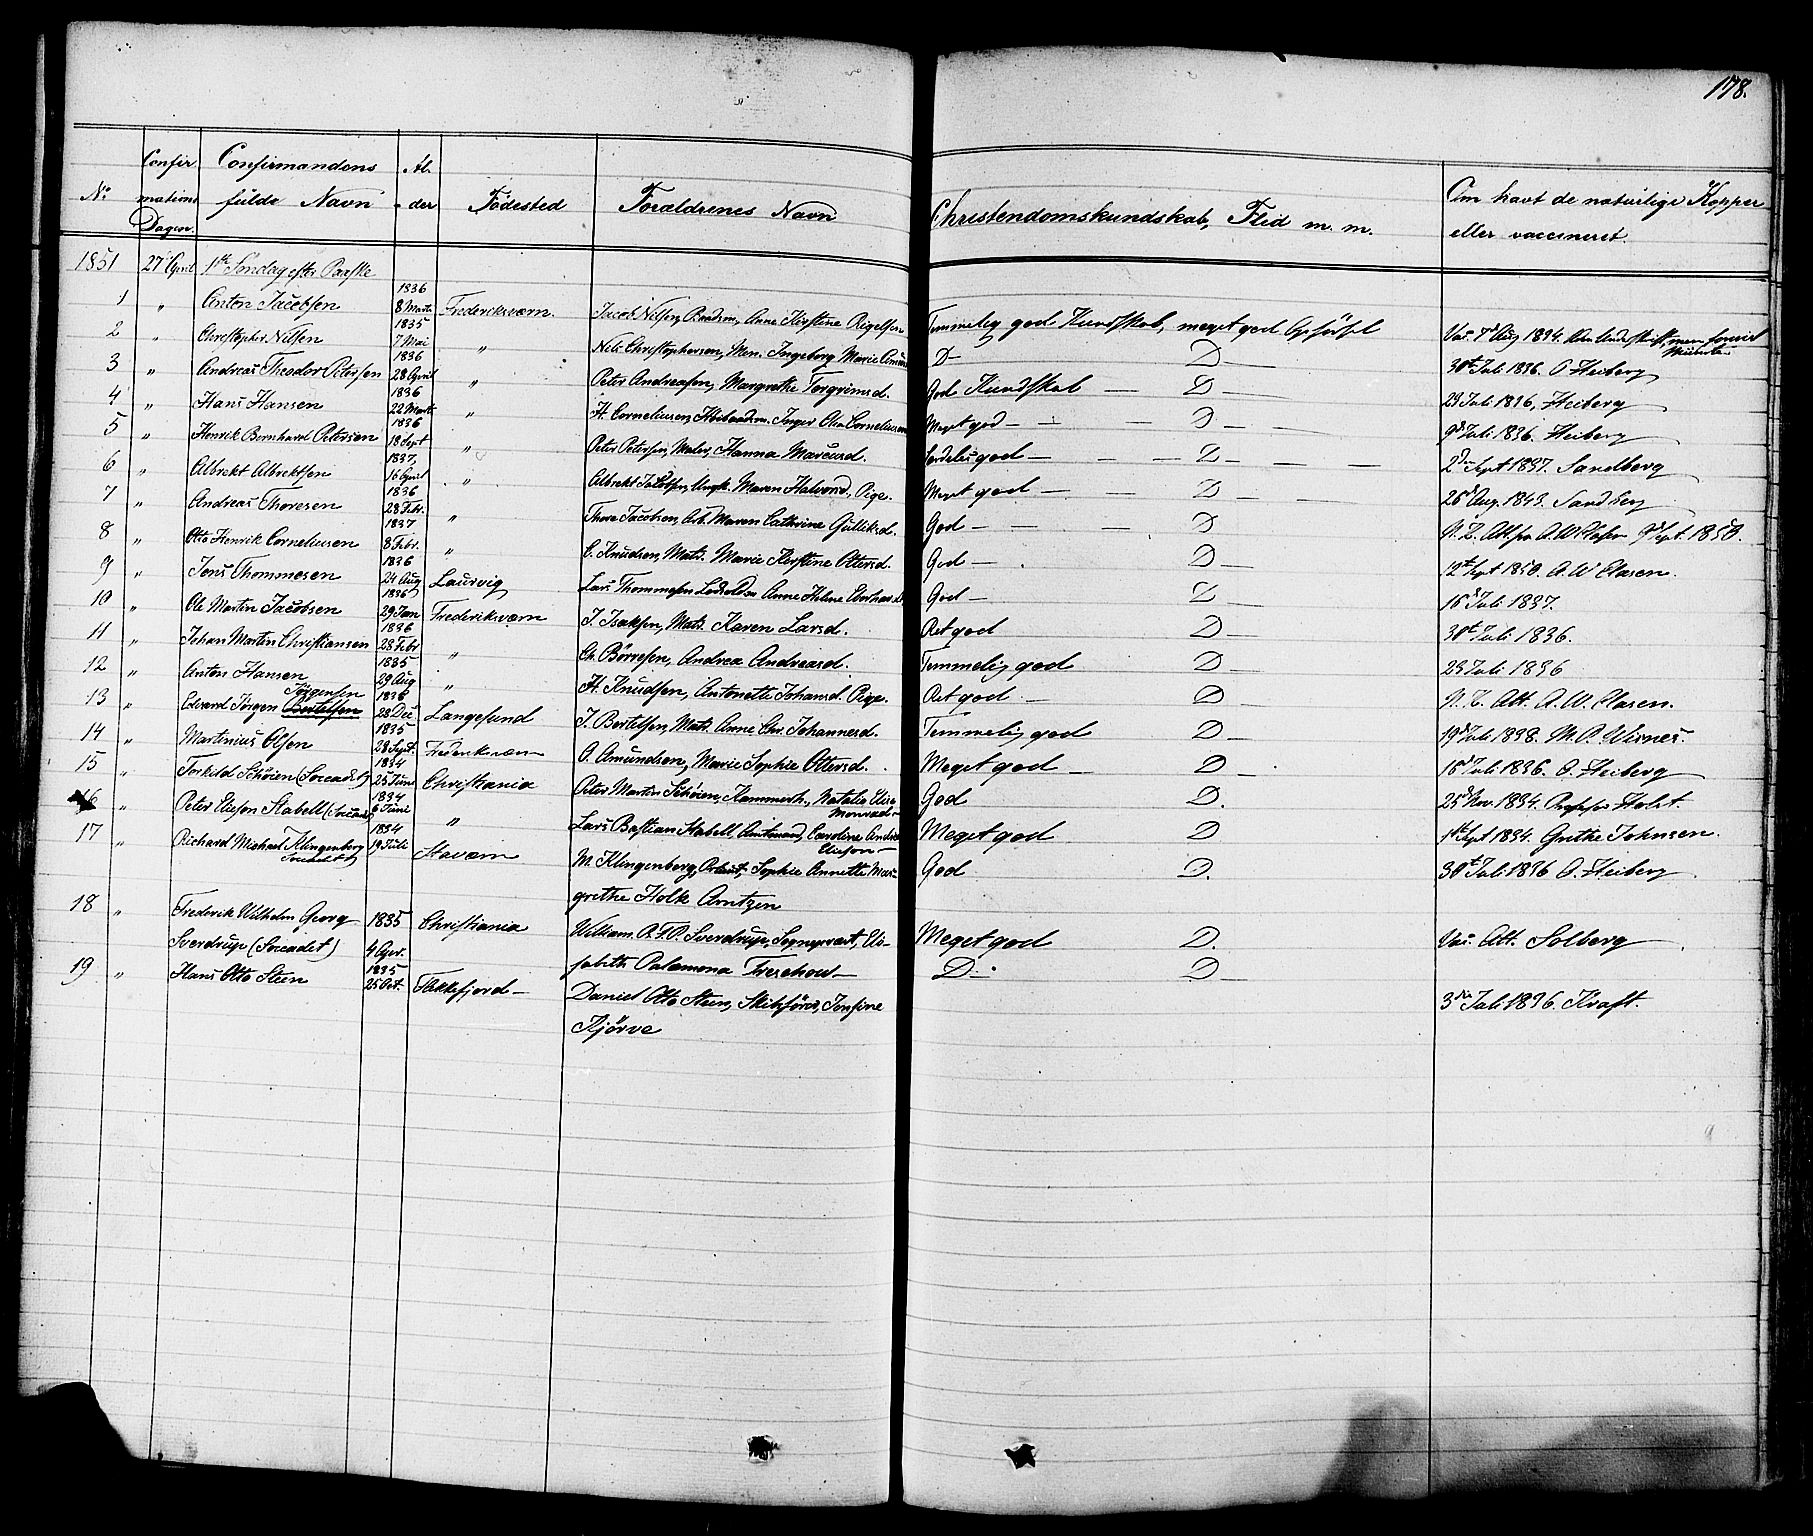 178.
No Confirmations Dagen. Confirmandens fulde Navn Alder Fødested Forældrenes Navn Christendomskundskab, Flid m. m. Om havt de naturlige Kopper eller vaccineret.
1851 27 April 1ste Søndag efter Paaske
1 " Anton Jacobsen 1836 8 Marts Frederiksværn. Jacob Nilsen, Baadsm., Anne Kirstine Rigelsen Temmelig god Kundskab, meget god Opførsel Vac. 7d Aug 1834.
2 " Christopher Nilsen 1835 7 Mai " Nils Christophersen, Anne Ingeborg Marie D- D- 30te Juli 1836 O Heiberg
3 " Andreas Theodor Petersen 1836 28 April " Peter Andreasen, Margrethe Torgrimsd. God Kundskab - D - 23 Juli 1836, Heiberg
4 " Hans Hansen 1836 22 Mart. " H. Corneliusen, Inger Olea Corneliusen Meget god - - D - - 9d Juli 1836. Heiberg
5 " Henrik Bernhard Petersen 1836 18 Sept " Peter Petersen, Maler, Hanna Marcusd. Særdeles god - - D - - - 2d Sept 1837. Sandberg
6 " Albrekt Albrektsen 1837. 16 April " Albrekt Jacobsen, Ungk. Maren Halvorsd. Pige. Meget god - - D - - 26d Aug. 1843. Sandberg
7 " Andreas Thoresen 1836 28 Febr. " Thore Jacobsen, Arb. Maren Cathrine Gulliksd. God - - - D N. Z. Att. fra A. W. Clasen 9d Sept. 1850.
8 " Otto Henrik Corneliusen 1837 8 Febr. " C. Knudsen, Matr. Marie Kirstine Ottersd. God - . D - 12te Sept 1850. A. W Clasen.
9 " Jens Thommesen 1836 24 Aug Laurvig Lars Thommesen Anne Helene God - D - 16d Juli 1837.
10 " Ole Martin Jacobsen 1836 29 Jan Frederiksværn J. Isaksen, Matr. Karen Larsd. Ret god D - 30te Juli 1836.
11 " Johan Martin Christiansen 1836 28 Febr " Ch. Børresen, Andrea Andreasd. Temmelig god D - 23 Juli 1836
12 " Anton Hansen 1835 29 Aug " H. Knudsen, Antonette Johansd. Pige. Ret god - D - N. Z. Att. A. W. Clasen.
13 " Edvard Jørgen Bertelsen Jørgensen 1836 28 Dec Langesund J. Bertelsen, Matr. Anne Chr. Johannesd. Temmelig god D - 19d Juli 1838. M. P. Wisnes.
14 " Martinius Olsen 1835 28 Sept. Frederiksværn O. Amundsen, Marie Sophie Ottersd. Meget god - D - 16d Juli 1836. O. Heiberg
15 " Torkild Schøien (Søcadet) 1834 25 Juni Christiania Peter Martin Schøien, Kammerh., Natalia Elise Monrad God D. 25d Nov. 1834. Professor Holst.
16 " Peter Elieson Stabell (Søcadet) 1834 6 Juni " Lars Bastian Stabell, Amtmand, Caroline Andrea Elieson - Meget god D. 1ste Sept 1834. Grethe Johnsen.
17 " Richard Michael Klingenberg Søcadet) 1834 19 Juli Stavern M. Klingenberg, Sophie Annette Mar-
grethe Holk Arntzen God D. 30te Juli 1836 O. Heiberg
18 " Frederik Wilhelm Georg 1835 Christiania William A. F. O. Sverdrup, Sognepræst, Eli- Meget god D. Vac. Att. Solberg
Sverdrup (Søcadet) 4 Apr. sabeth Palæmona Treschow -
19 " Hans Otto Steen 1835 25 Oct. Flekkefjord - Daniel Otto Steen, Skibsfører, Jonsine D - D - 3die Juli 1836. Kraft.
Kjørve